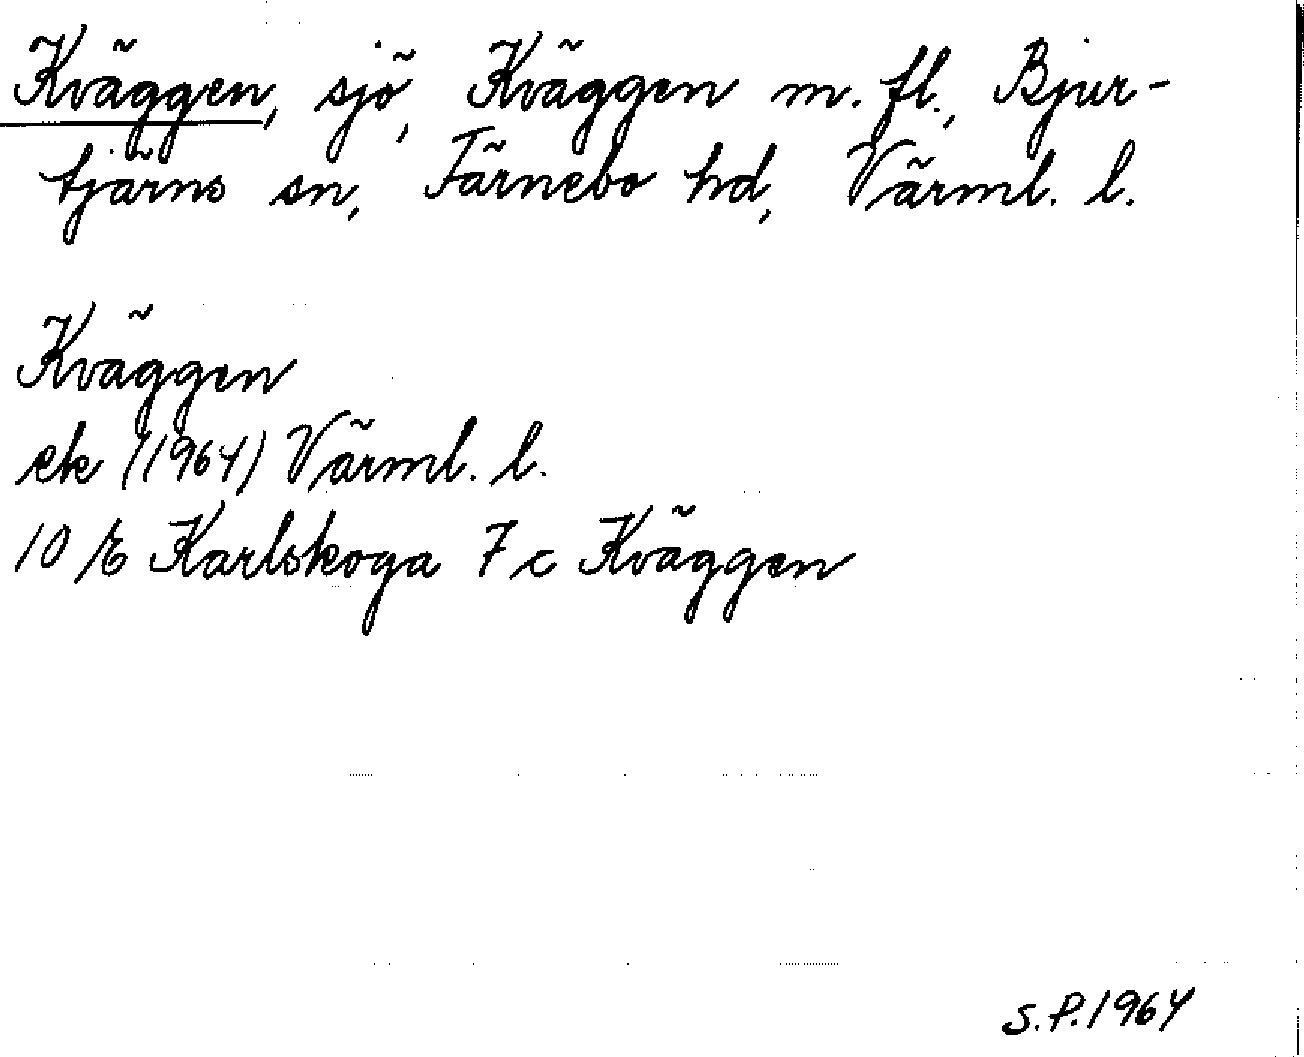 Kväggen, sjö, Kväggen m. fl., Bjur-
tjärns sn, Färnebo hd, Värml. l.
Kväggen
ek (1964) Värml. l.
10 E Karlskoga 7 c Kväggen
S.P. 1964